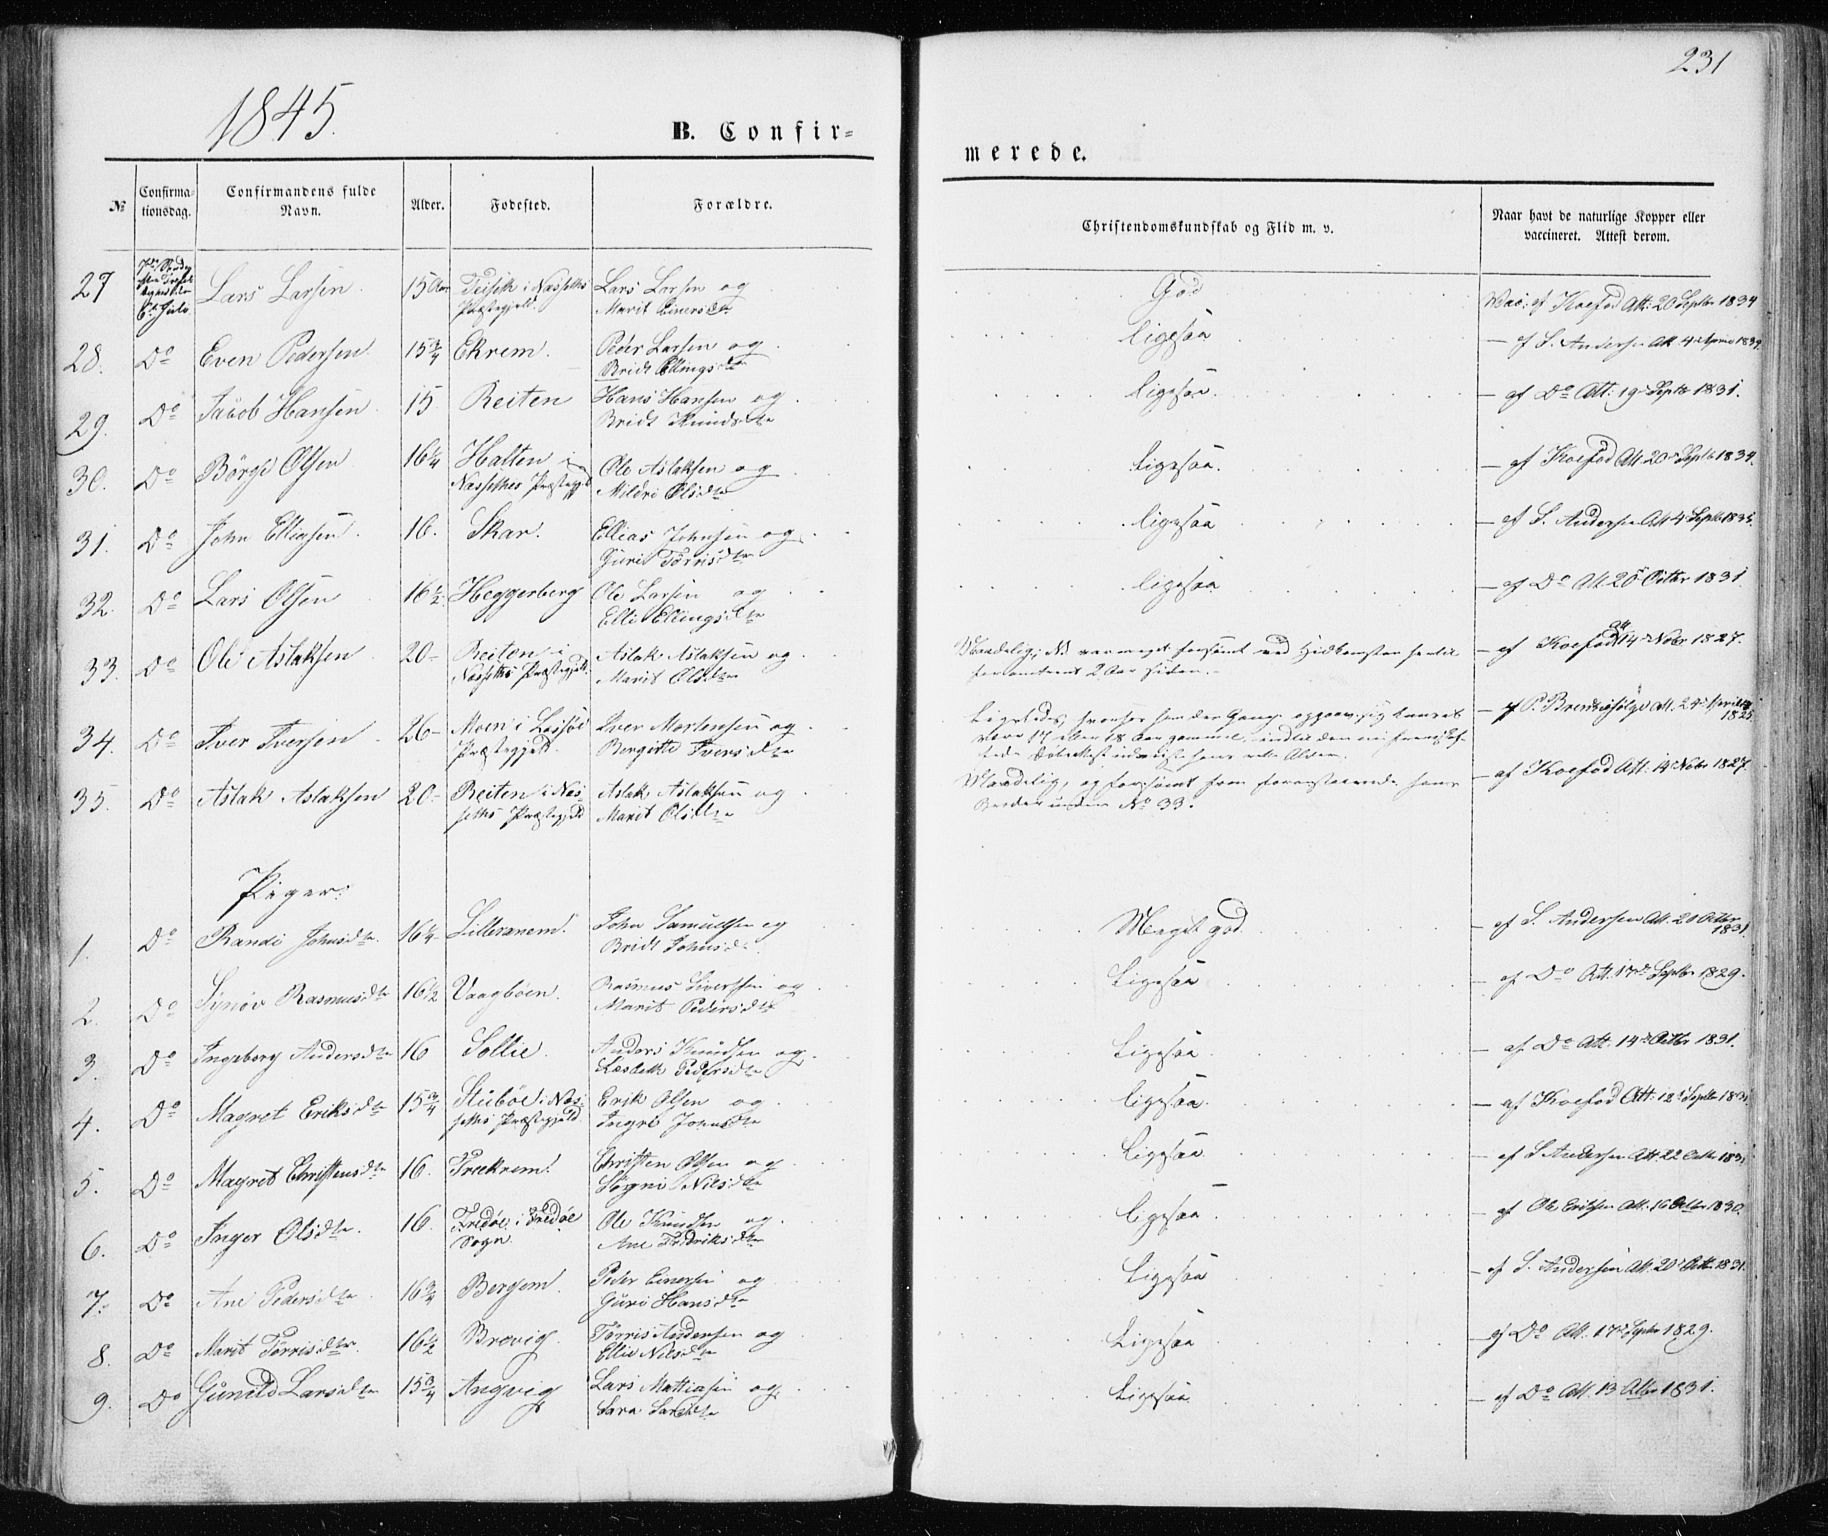 231
1845.
B. Confir-
merede.
№ Confirmationsdag. Confirmandens fulde Navn. Alder. Fødested. Forældre. Christendomskundskab og Flid m. v. Naar havt de naturlige Kopper eller vaccineret. Attest derom.
27 Lars Larsen 15 Aar i Nessets Præstegjeld. Lars Larsen og Marit Einersdtr God Vac: af Koefod Att: 20 Septbr 1834
28. Do Even Pedersen 15 3/4 Ekrem. Peder Larsen og Bridt Ellingsdtr ligesaa — af S. Andersen Att 4 April 1839.
29. Do Jacob Hansen 15 Reiten Hans Hansen og Bridt Knudsdtr ligesaa. — af Do Att: 19 Septbr 1831.
30. Do Børge Olsen 16 1/4 Halten i Nessethes Præstegjeld Ole Aslaksen og Mildri Olsdtr ligesaa. — af Koefod Att. 20 Septbr 1834.
31. Do John Elliasen 16. Skar. Ellias Johnsen og Guri Tørrisdtr ligesaa — af S. Andersen Att 4 Septbr
32. Do Lars Olsen 16 1/2 Heggerberg Ole Larsen og Elli Ellingsdtr ligesaa — af Do Att 20 Octbr 1831
33. Do Ole Aslaksen 20 - Reiten i Nessethes Præstegjeld. Aslak Aslaksen og Marit Olsdtr Maadelig, 2 Aar siden. — af Koefod Att 14 Novbr 1827.
34. Do Iver Iversen 26 - Moen i Lessøe Præstegjeld Iver Mortensen og Bergitte Iversdtr 17 eller 18 Aar gammel, indtil — af P. Att. 24 April 1825
35. Do Aslak Aslaksen 20 - Reiten i Nessethes Præstegjeld Aslak Aslaksen og Marit Olsdtr Maadelig, og forsømt som foranstaaende hans Broder under No 33. — af Koefod Att: 14 Novbr 1827.
Piger:
1. Do Randi Johnsdtr 16 1/4 Lilleranem. John Samuelsen og Bridt Johnsd. Meget god — af S. Andersen Att. 20 Octbr 1831
2. Do Synøv Rasmusdtr 16 1/2 Vaagbøen. Rasmus Sivertsen og Marit Pedersdtr Ligesaa — af Do Att. 17 Septbr 1829.
3. Do Ingeborg Andersdtr 16 Sollie. Anders Knudsen og Lisbeth Pedersdtr Ligesaa — af Do Att. 14 Octbr 1831.
4. Do Magret Eriksdtr 15 3/4 Stubøe i Nessethes Præstegjeld Erik Olsen og Ingri Johnsdtr ligesaa. — af Koefod Att: 12 Septbr 1831
5. Do Magret Christensdtr 16. Freekrem. Christen Olsen og Søgni Nilsdtr Ligesaa — af S Andersen Att. 22 Octbr 1831
6. Do Inger Olsdtr 16. Fredøe i Fredøe Sogn Ole Knudsen og Ane Fredriksdtr ligesaa — af Ole Eriksen Att. 16 Octbr 1830.
7. Do Ane Pedersdtr 16 3/4 Bergem. Peder Einersen og Guri Hansdtr Ligesaa — af S. Andersen Att. 20 Octbr 1831.
8. Do Marit Tørrisdtr 16 1/2 Brevig. Tørris Andersen og Ellie Nilsdtr Ligesaa — af Do Att. 17 Septbr 1829.
9. Do Gunild Larsdtr 15 3/4 Angvig Lars Mathiasen og Sara Larsdtr Ligesaa — af Do Att. 13 1831.